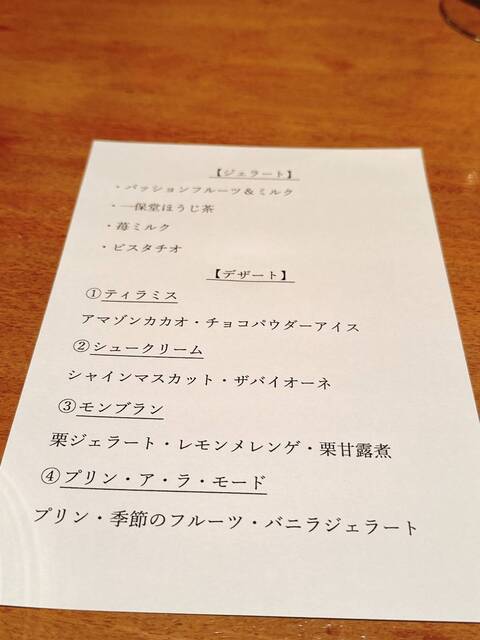 【ジェラート】
・パッションフルーツ＆ミルク
・一保堂ほうじ茶
・苺ミルク
・ピスタチオ
【デザート】
①ティラミス
アマゾンカカオ・チョコパウダーアイス
②シュークリーム
シャインマスカット・ザバイオーネ
③モンブラン
栗ジェラート・レモンメレンゲ・栗甘露煮
④プリン・ア・ラ・モード
プリン・季節のフルーツ・バニラジェラート